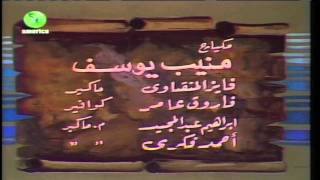 america
مكياج
منيب يوسف
فايز المنقاوى ماكير
فاروق عامر كوافير
ابراهيم عبد المجيد م. ماكير
أحمد فكرى " "